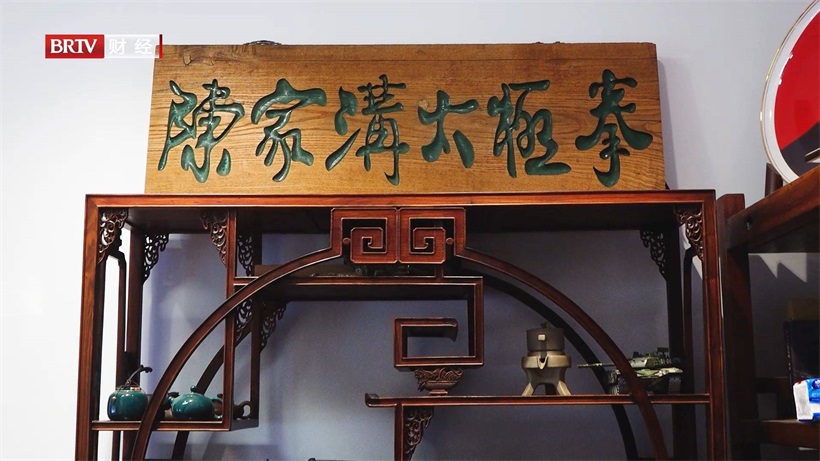 BRTV 财经
陳家溝太極拳